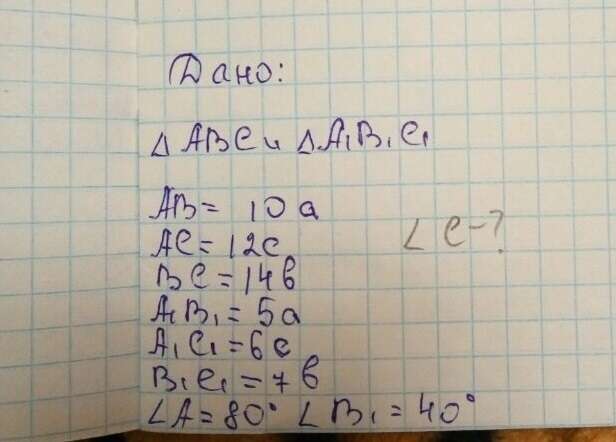 Дано:
△ABC и △A₁B₁C₁
AB = 10a
AC = 12c
∠C-?
BC = 14b
A₁B₁ = 5a
A₁C₁ = 6c
B₁C₁ = 7b
∠A = 80° ∠B₁ = 40°